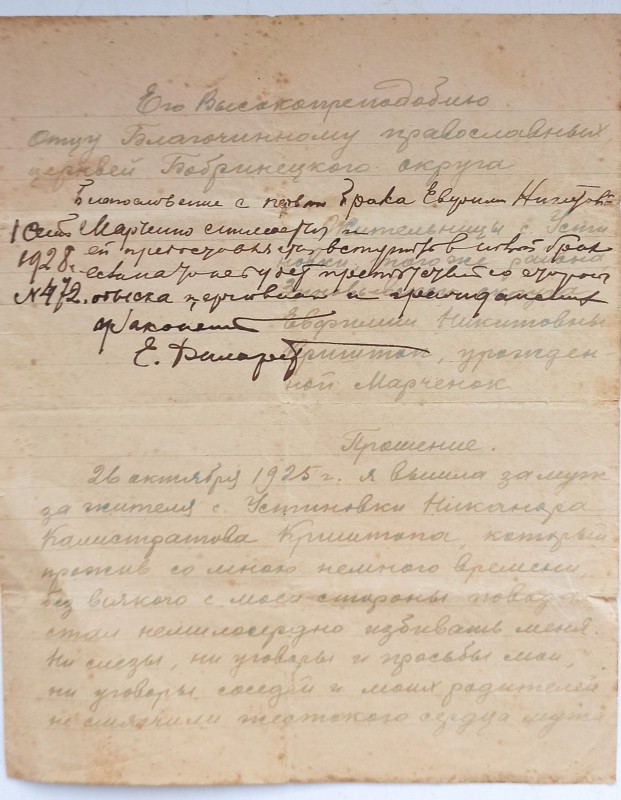 Его Высокопреподобию
Отцу Благочинному православных
церквей Бобринецкого округа
Благословение с первого брака Евфимии Никитовн
1 Сент Марченко снимается и
ей предоставляется вступить в новый брак
1928 г. если
№ 472. церковным и гражданским
законом
Е.
жительницы с. Усти
новки, того же района
округа
Евфимии Никитовны
Криштоп, урожден-
ной Марченок
Прошение.
26 октября 1925 г. я вышла замуж
за жителя с. Устиновки Никанора
Калистратова Криштопа, который
прожив со мною немного времени,
без всякого с моей стороны повода
стал немилосердно избивать меня.
Ни слезы, ни уговоры и просьбы мои,
ни уговоры соседей и моих родителей
не смягчили жестокого сердца мужа